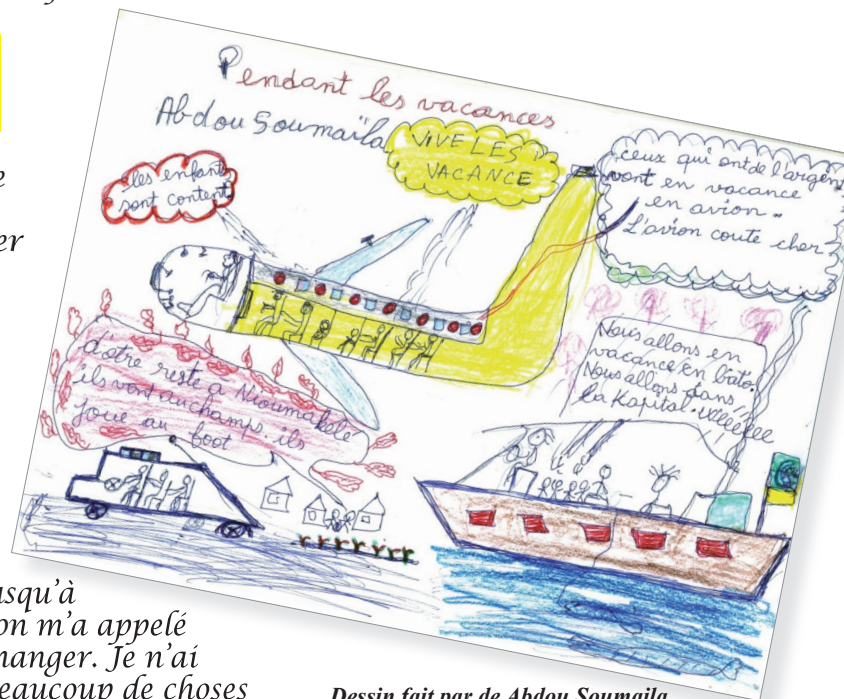 Pendant les vacances
Abdou Soumaïla
VIVE LES
VACANCE
les enfants
sont content
ceux qui ont de l'argen
vont en vacance
en avion.
L'avion coute cher
Nous allons en
vacance en bato.
Nous allons dans
la Kapital.
d'otre reste a Nioumakélé
ils vont au champs, ils
joue au foot
er
usqu'à
on m'a appelé
manger. Je n'ai
eaucoup de choses
Dessin fait par de Abdou Soumaila